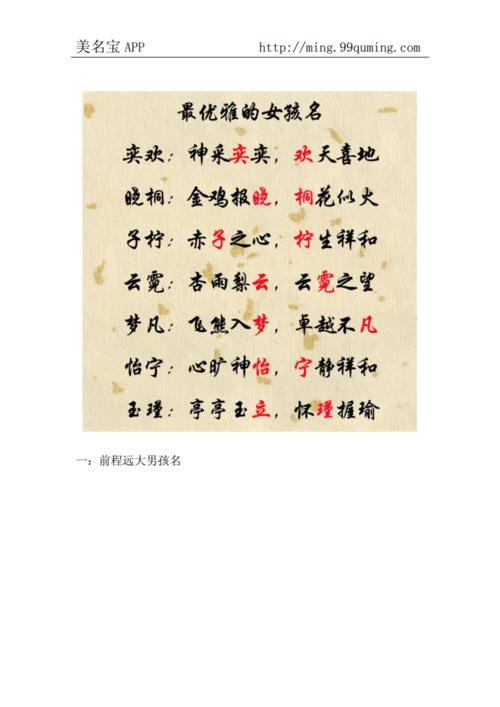 美名宝 APP http://ming.99quming.com
最优雅的女孩名
奕欢：神采奕奕，欢天喜地
晓桐：金鸡报晓，桐花似火
子柠：赤子之心，柠生祥和
云霓：杏雨梨云，云霓之望
梦凡：飞熊入梦，卓越不凡
怡宁：心旷神怡，宁静祥和
玉瑾：亭亭玉立，怀瑾握瑜
一：前程远大男孩名